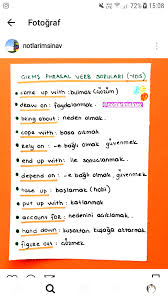 %72 15:08
Fotoğraf
notlarimsinav
ÇIKMIŞ PHRASAL VERB SORULARI (YDS)
come up with: bulmak (çözüm)
draw on: faydalanmak.
bring about: neden olmak.
cope with: başa çıkmak
rely on: -e bağlı olmak, güvenmek
end up with: ile sonuçlanmak.
depend on: -e bağlı olmak, güvenmek
take up: başlamak (hobi)
put up with: katlanmak
account for: nedenini açıklamak.
hand down: kuşaktan kuşağa aktarmak
figure out: çözmek